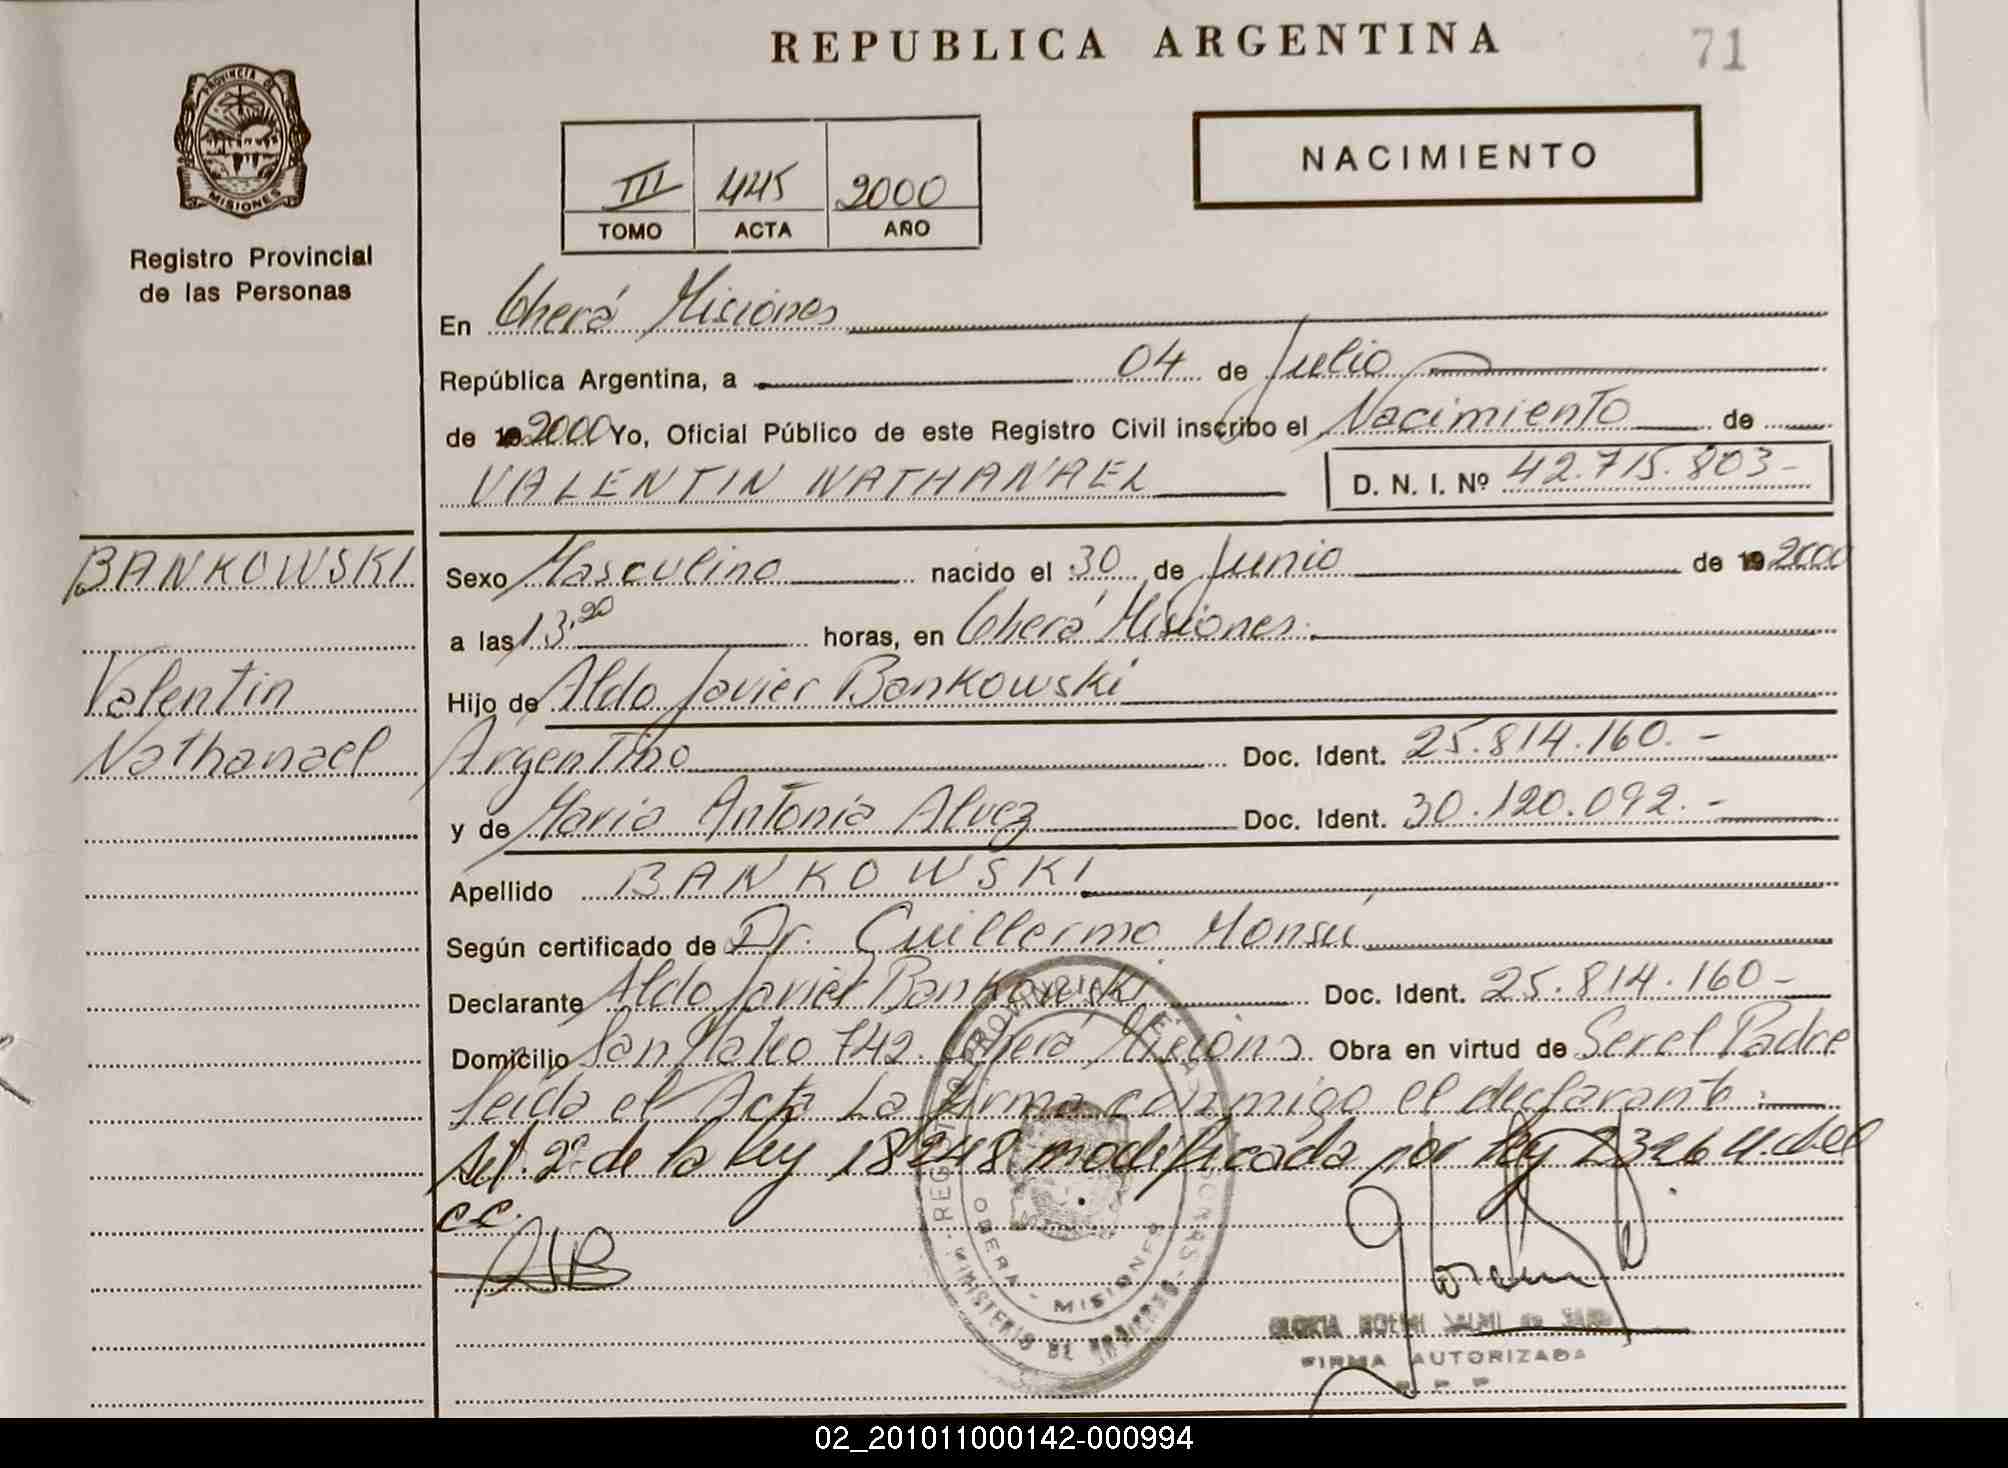 REPUBLICA ARGENTINA
71
PROVINCIA DE
MISIONES
Registro Provincial
de las Personas
III 445 2000
TOMO ACTA AÑO
NACIMIENTO
En Oberá Misiones
República Argentina, a 04 de Julio
de 19 2000 Yo, Oficial Público de este Registro Civil inscribo el Nacimiento de
VALENTIN NATHANAEL D. N. I. Nº 42.715.803-
BANKOWSKI
Valentin
Nathanael
Sexo Masculino nacido el 30 de Junio de 19 2000
a las 13,20 horas, en Oberá Misiones.
Hijo de Aldo Javier Bankowski
Argentino Doc. Ident. 25.814.160.-
y de Maria Antonia Alvez Doc. Ident. 30.120.092.-
Apellido BANKOWSKI
Según certificado de Dr. Guillermo Monsú
Declarante Aldo Javier Bankowski Doc. Ident. 25.814.160-
Domicilio San Mateo 742. Oberá Misiones Obra en virtud de Ser el Padre
leída el Acta La firma conmigo el declarante.
Art. 2º de la ley 18248 modificada por ley 23264 del
C.C.
AJB
REGISTRO PROVINCIAL DE LAS PERSONAS
OBERA - MISIONES
MINISTERIO DE GOBIERNO
GLORIA
FIRMA AUTORIZADA
R P P
02_201011000142-000994